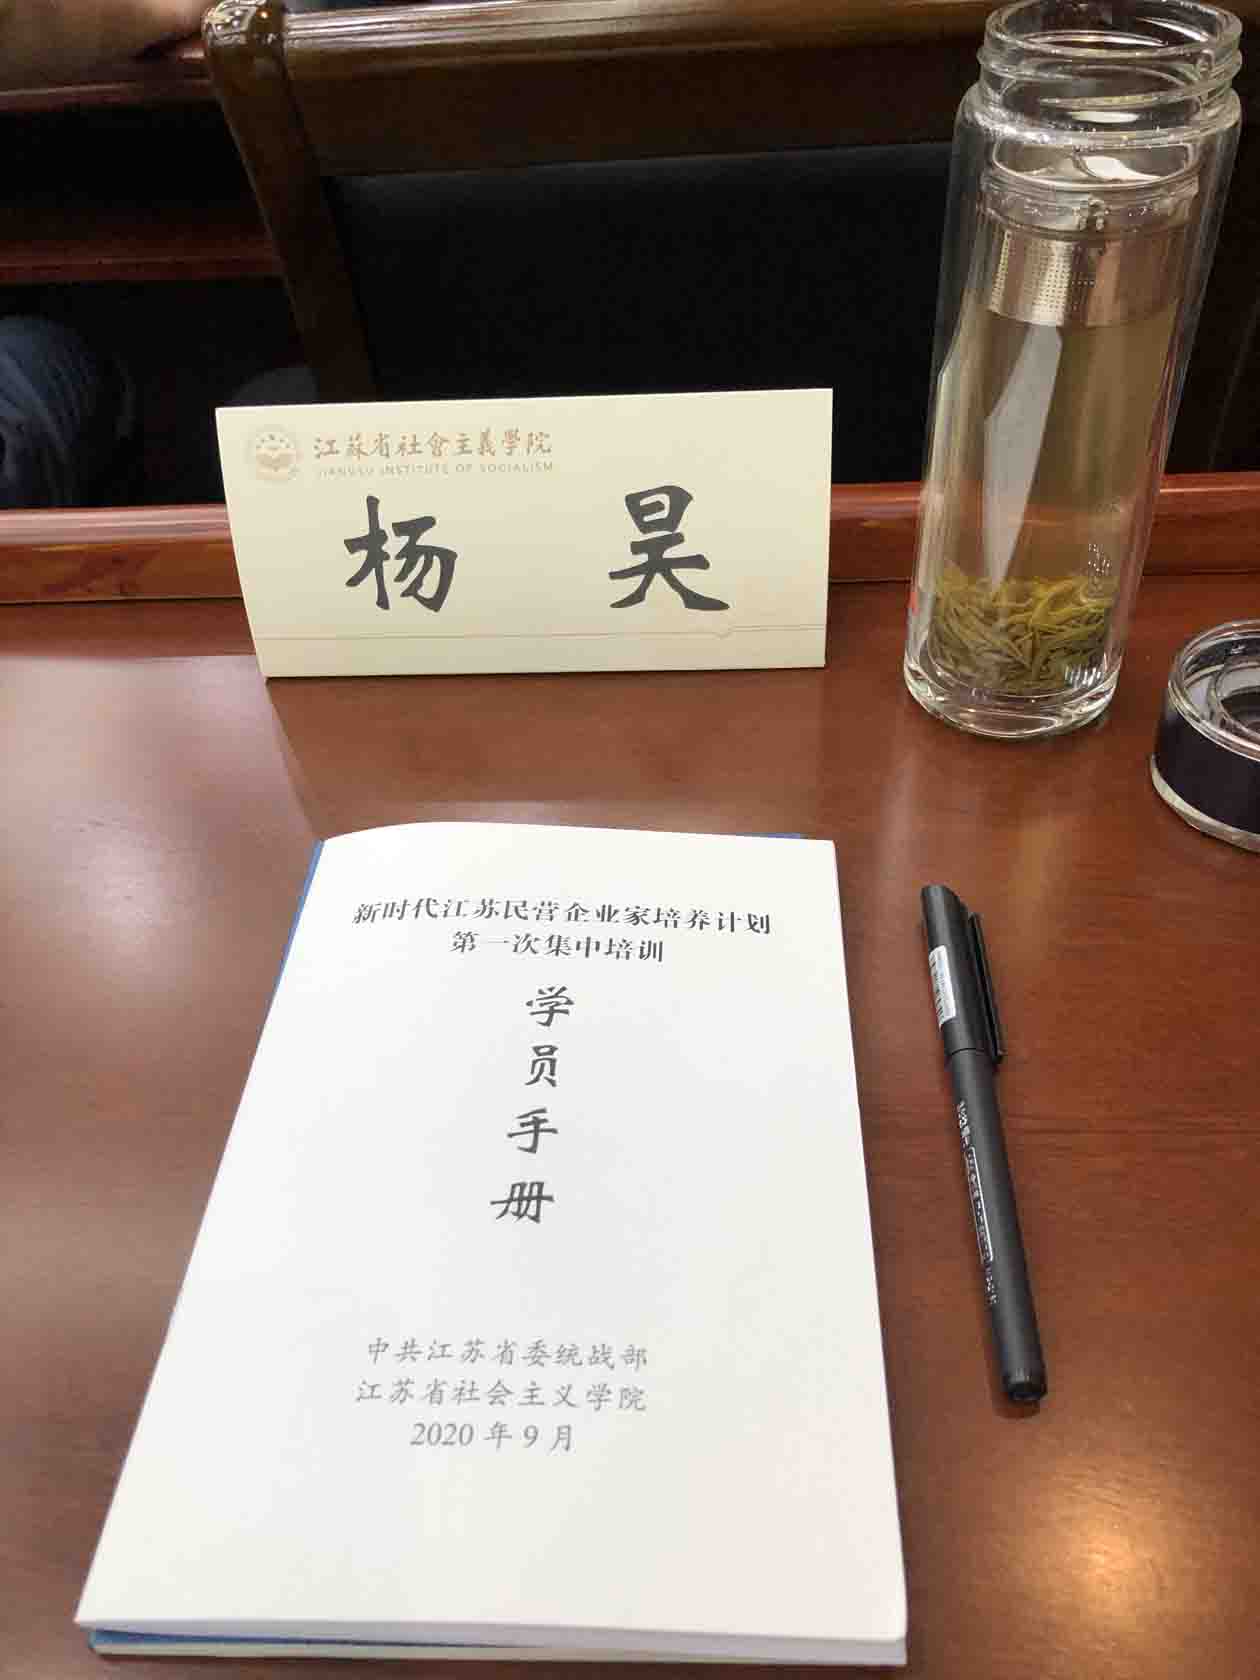 江蘇省社會主義學院
JIANGSU INSTITUTE OF SOCIALISM
杨 昊
新时代江苏民营企业家培养计划
第一次集中培训
学
员
手
册
中共江苏省委统战部
江苏省社会主义学院
2020 年 9 月